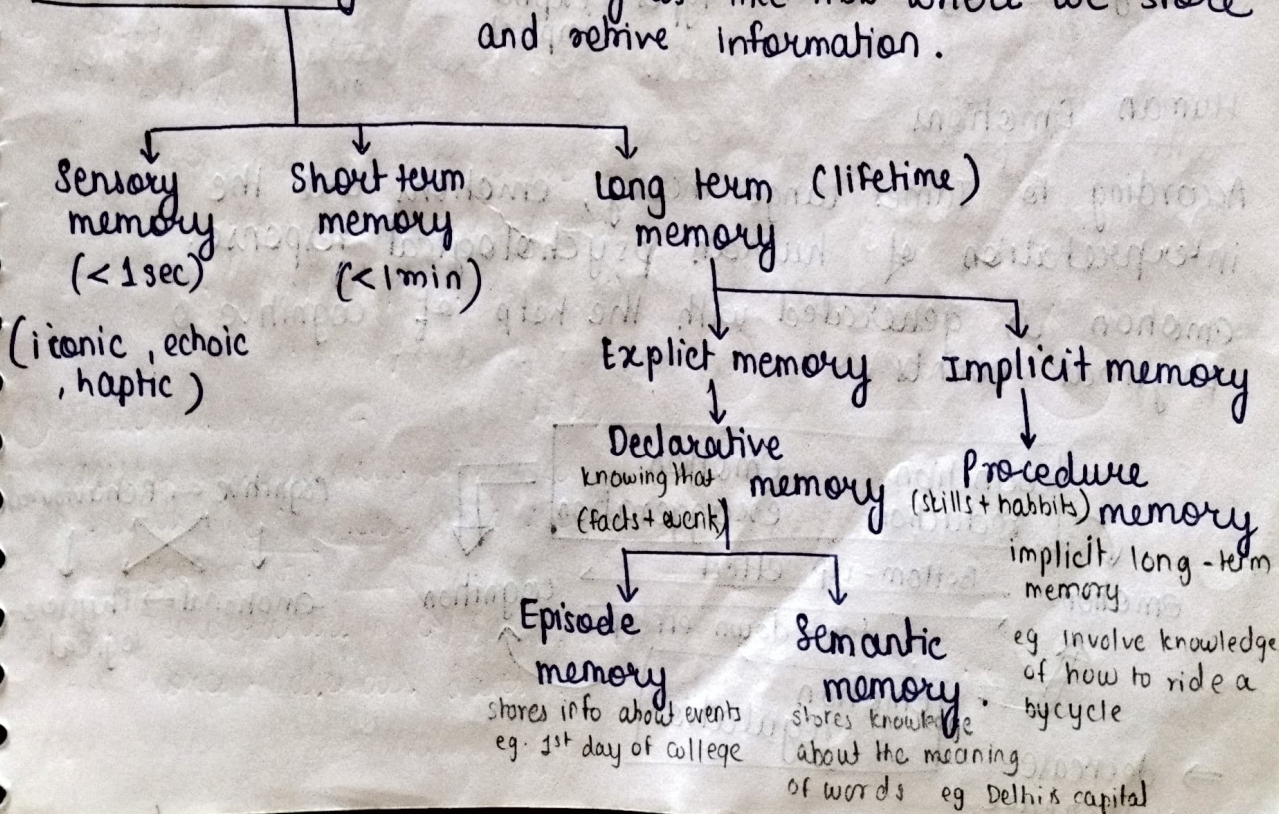 like how where we store
and retrive information.
Sensory memory (<1sec)
(iconic, echoic
, haptic)
Short term memory (<1min)
Long term (lifetime)
memory
Explict memory
Implicit memory
Declarative
knowing that memory
(facts + event)
Procedure
(skills + habbits) memory
implicit long-term
memory
eg involve knowledge
of how to ride a
bycycle
Episode
memory
stores info about events
eg. 1st day of college
Semantic
memory.
stores knowledge
about the meaning
of words eg Delhi is capital